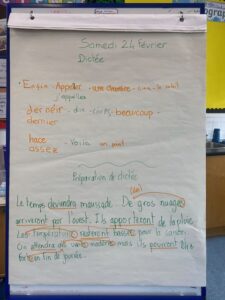 Samedi 24 février
Dictée
Enfin - Appeller - une chambre - - le soleil
j'appelles
derrière - dix - - beaucoup -
dernier
assez - Voilà - un mot
Préparation de dictée
Le temps deviendra maussade. De gros nuages
arriveront par l'ouest. Ils apporteront de la pluie.
Les températures resteront basses pour la saison.
On attendra des vents modérés mais ils pourront être
forts en fin de journée.